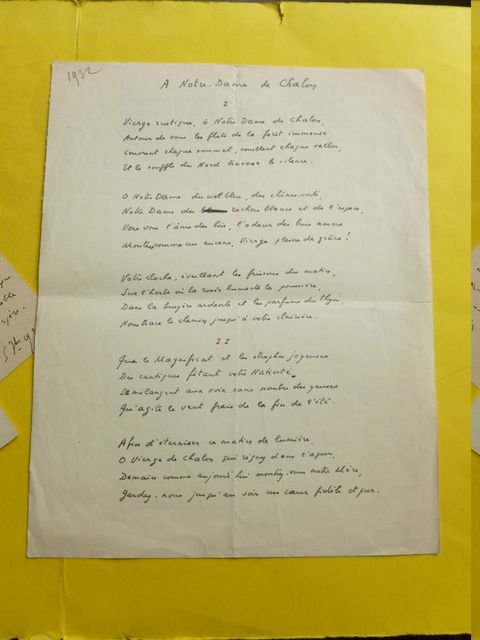 1932
A Notre-Dame de Chalon
I
Vierge rustique, ô Notre Dame de Chalon,
Autour de vous les flots de la forêt immense
Couvrent chaque sommet, comblent chaque vallon,
Et le souffle du Nord traverse le silence.
O Notre Dame du ciel bleu, des chênes verts,
Notre Dame des rochers blancs et de l'espace,
Vers vous l'âme des bois, l'odeur des buis amers
Monte comme un encens, Vierge pleine de grâce!
Votre cloche, éveillant les frissons du matin,
Sur l'herbe où la rosée humecte la poussière,
Dans la bruyère ardente et les parfums du thym,
Nous trace le chemin jusqu'à votre clairière.
II
Que le Magnificat et les strophes joyeuses
Des cantiques fêtant votre Nativité,
Se mélangent aux voix sans nombre des yeuses
Qu'agite le vent frais de la fin de l'été.
Afin d'éterniser ce matin de lumière,
O Vierge de Chalon qui régnez dans l'azur,
Demain comme aujourd'hui montrez-vous notre Mère,
Gardez-nous jusqu'au soir un cœur fidèle et pur.